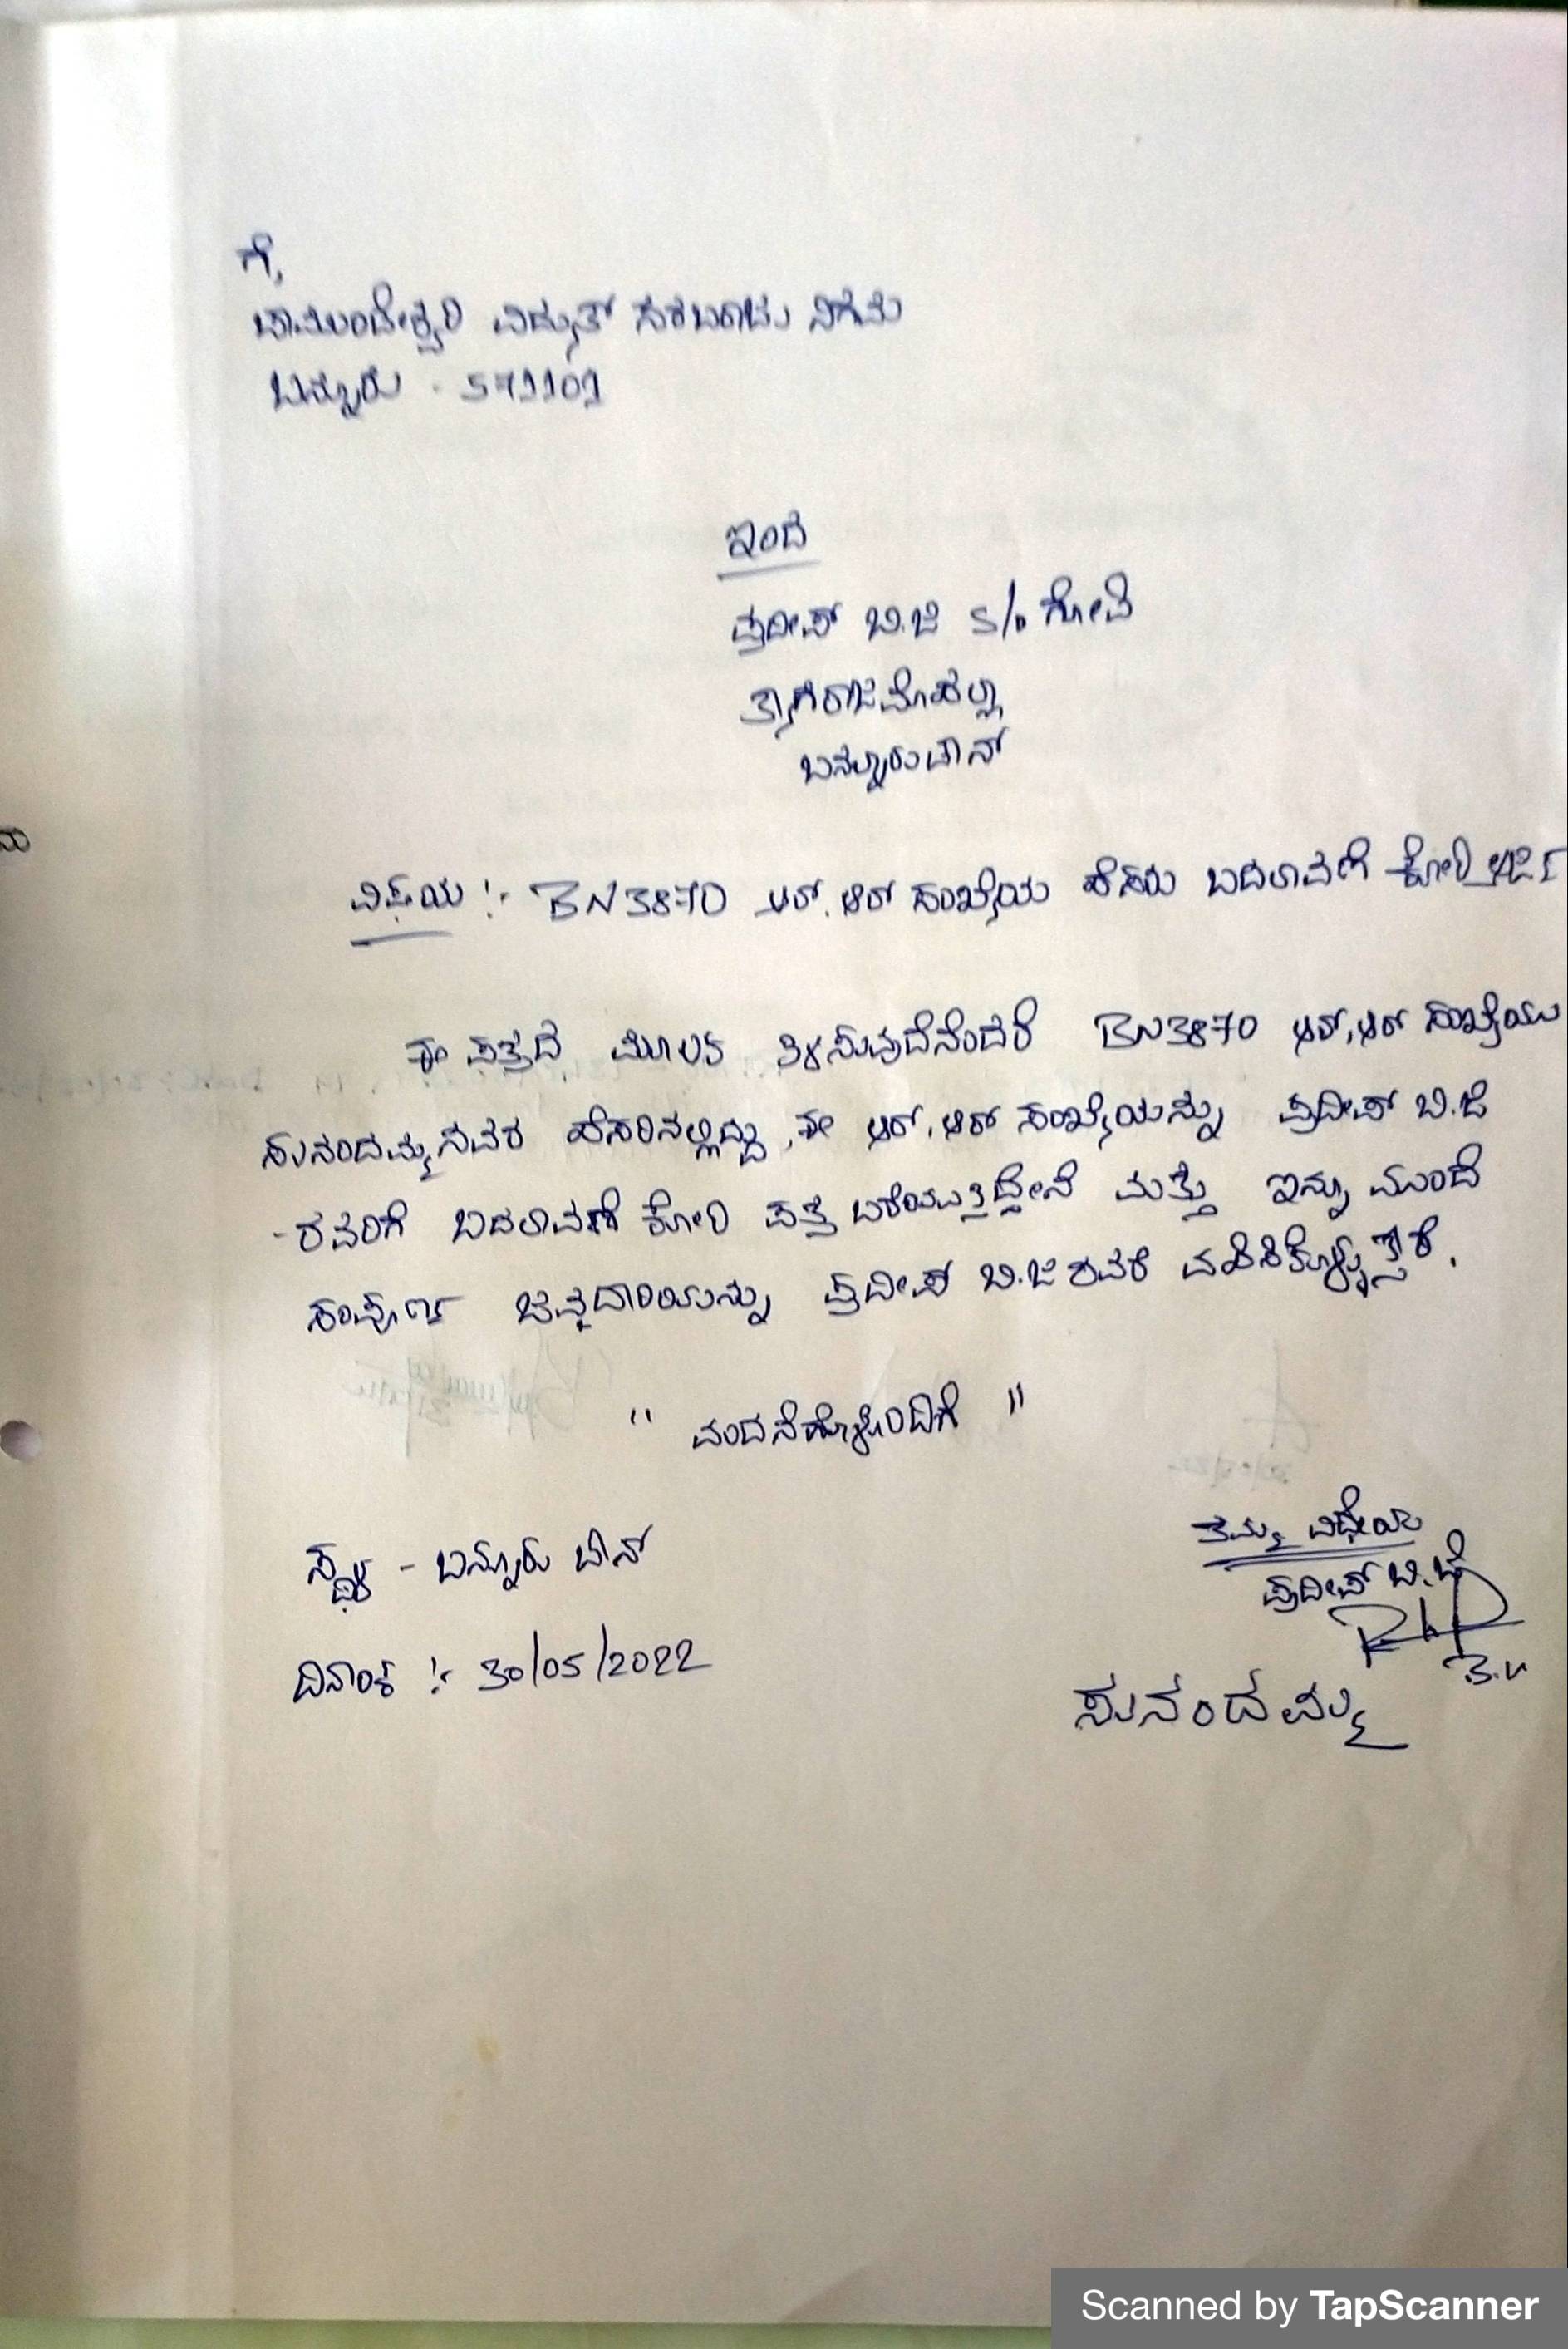 ಗೆ,
ಚಾಮುಂಡೇಶ್ವರಿ ವಿದ್ಯುತ್ ಸರಬರಾಜು ನಿಗಮ
ಬನ್ನೂರು - 571101
ಇಂದ
ಪ್ರದೀಪ್ ಬಿ.ಜಿ S/o
ತ್ಯಾಗರಾಜಮೊಹಲ್ಲಾ
ಬನ್ನೂರು ಟೌನ್
ವಿಷಯ :- BN3870 ಆರ್.ಆರ್ ಸಂಖ್ಯೆಯ ಹೆಸರು ಬದಲಾವಣೆ ಕೋರಿ ಅರ್ಜಿ
ಈ ಪತ್ರದ ಮೂಲಕ ತಿಳಿಸುವುದೆನೆಂದರೆ BN3870 ಆರ್.ಆರ್ ಸಂಖ್ಯೆಯು
ಸುನಂದಮ್ಮನವರ ಹೆಸರಿನಲ್ಲಿದ್ದು, ಈ ಆರ್.ಆರ್ ಸಂಖ್ಯೆಯನ್ನು ಪ್ರದೀಪ್ ಬಿ.ಜಿ
-ರವರಿಗೆ ಬದಲಾವಣೆ ಕೋರಿ ಪತ್ರ ಬರೆಯುತ್ತಿದ್ದೇನೆ ಮತ್ತು ಇನ್ನು ಮುಂದೆ
ಸಂಪೂರ್ಣ ಜವ್ದಾರಿಯನ್ನು ಪ್ರದೀಪ್ ಬಿ.ಜಿ ರವರೆ ವಹಿಸಿಕೊಳ್ಳುತ್ತಾರೆ.
" ವಂದನೆಗಳೊಂದಿಗೆ "
ಸ್ಥಳ - ಬನ್ನೂರು ಟೌನ್
ತಮ್ಮ ವಿಧೇಯ
ಪ್ರದೀಪ್ ಬಿ.ಜಿ
ದಿನಾಂಕ :- 30/05/2022
ಸುನಂದಮ್ಮ
Scanned by TapScanner